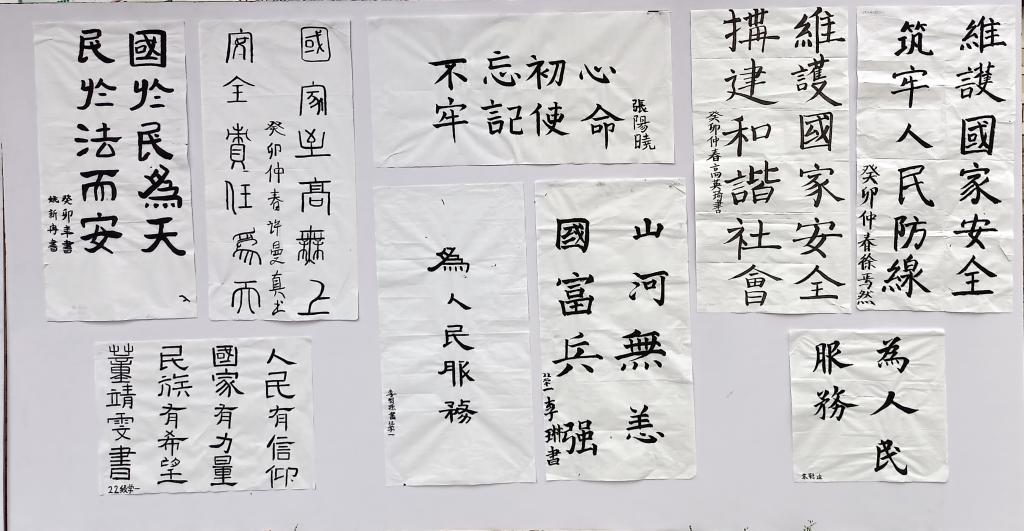 國於民為天
民於法而安
癸卯年書
國家至高無上
安全責任為天
癸卯仲春許曼真书
不忘初心
牢記使命
張陽曉
維護國家安全
搆建和諧社會
癸卯仲春高英琦書
維護國家安全
筑牢人民防線
癸卯仲春徐焉然
人民有信仰
國家有力量
民族有希望
董靖雯書
22級学一
為人民服務
山河無恙
國富兵强
学一李琳書
為人民
服務